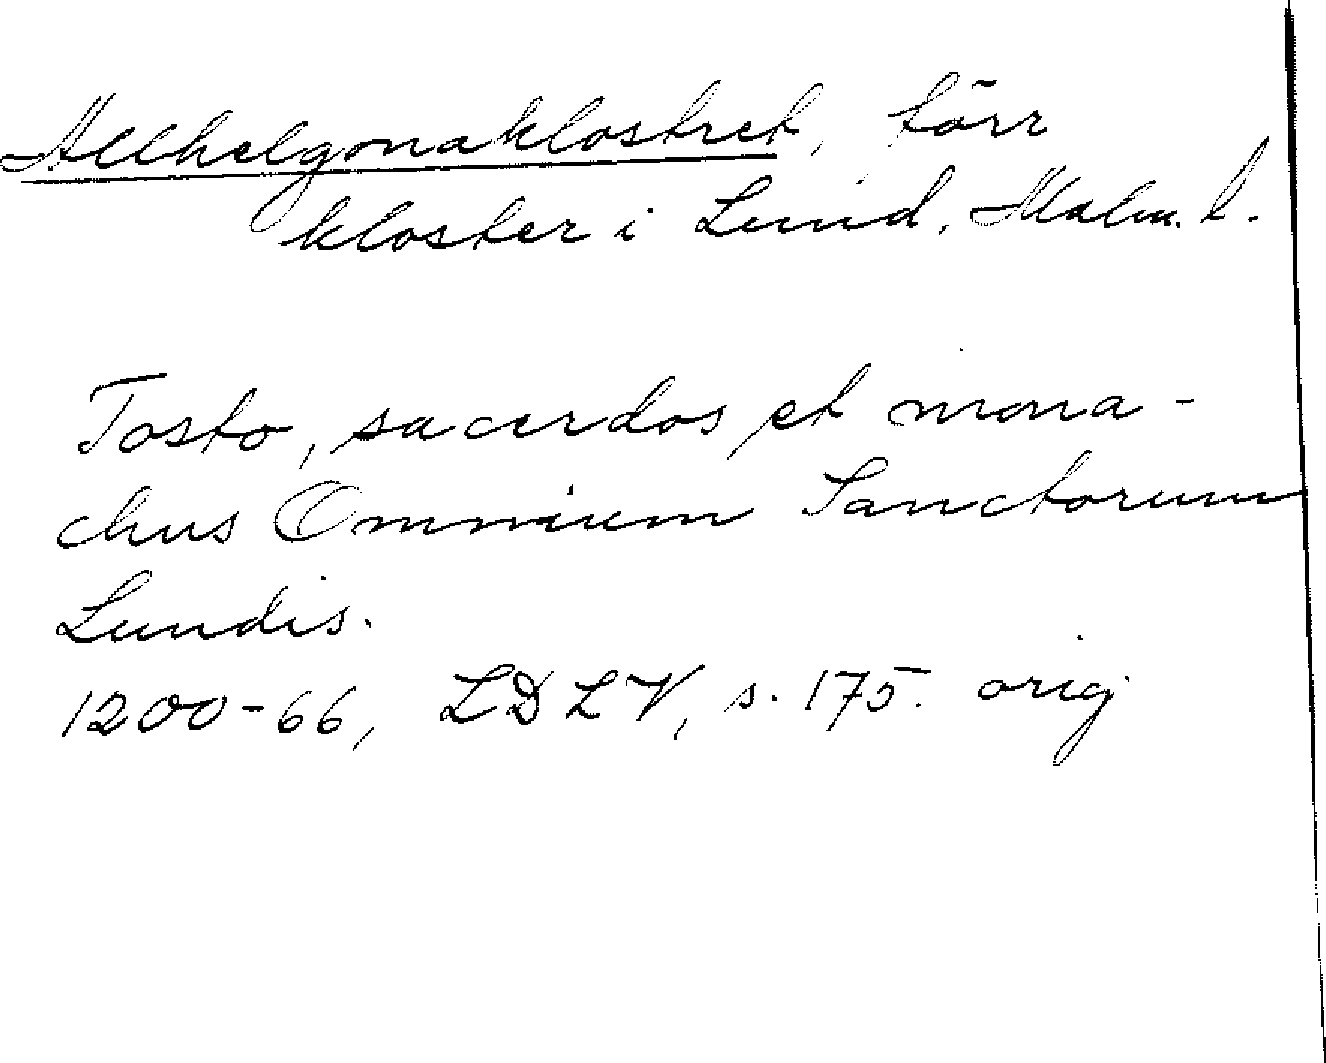 Allhelgonaklostret, förr
kloster i Lund, Malm. l.
Tosto, sacerdos et mona-
chus Omnium Sanctorum
Lundis.
1200-66, LDLV, s. 175. orig